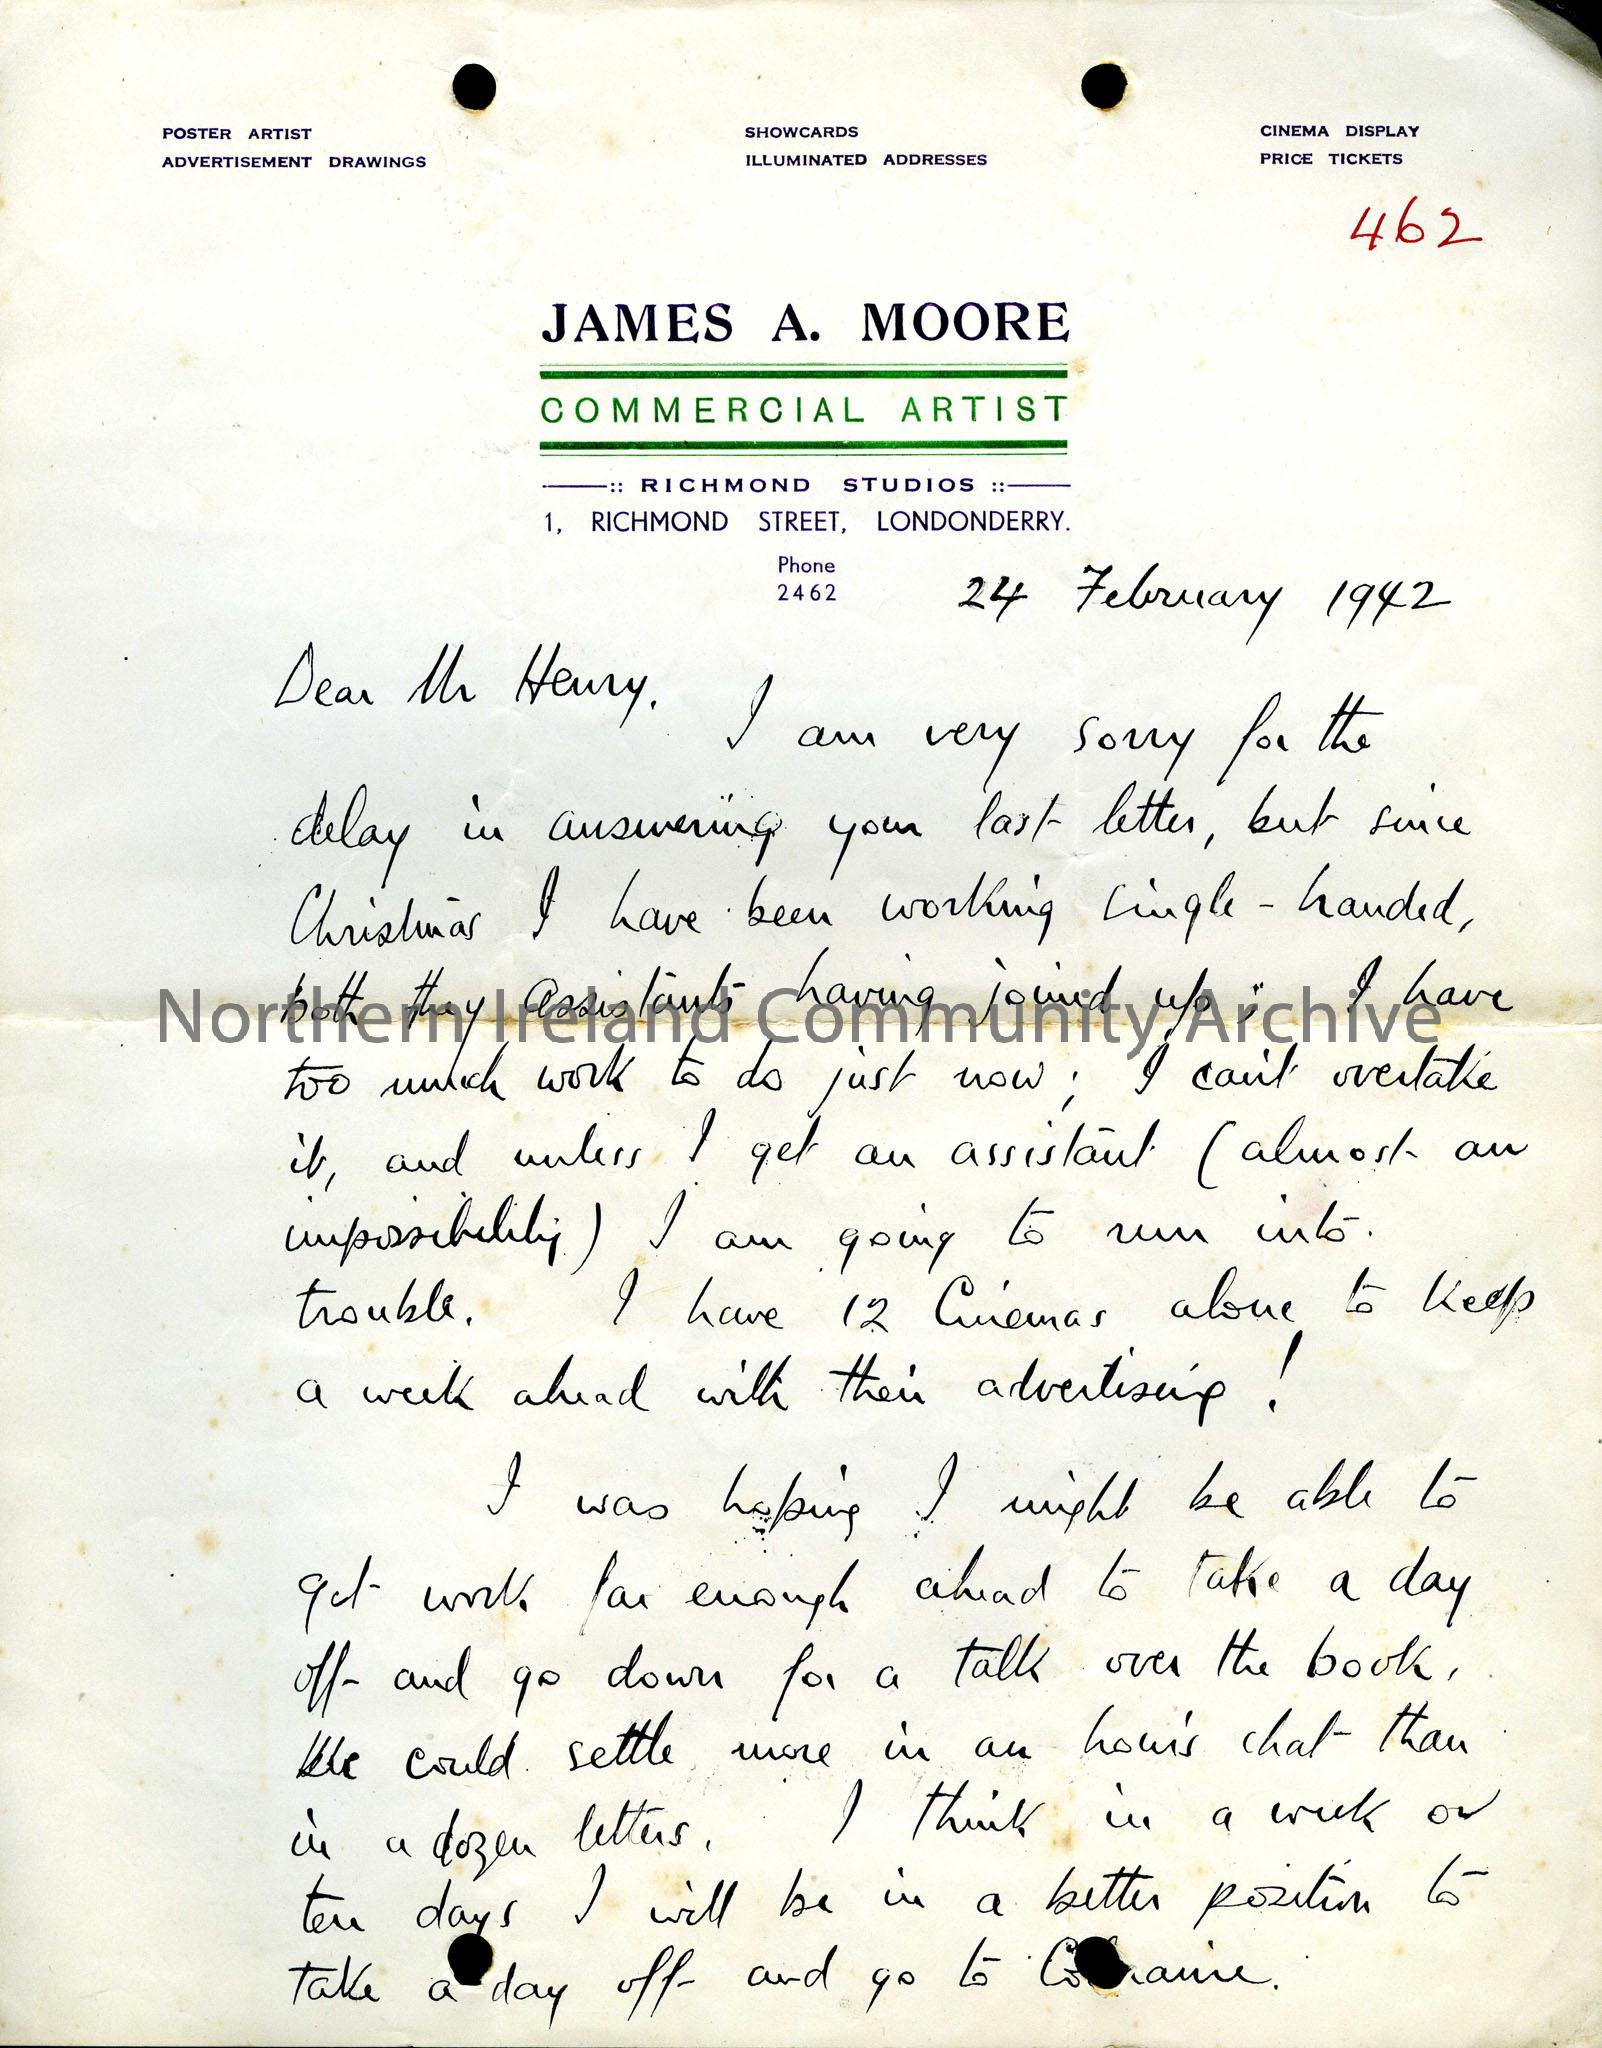 POSTER ARTIST
ADVERTISEMENT DRAWINGS
SHOWCARDS
ILLUMINATED ADDRESSES
CINEMA DISPLAY
PRICE TICKETS
462
JAMES A. MOORE
COMMERCIAL ARTIST
:: RICHMOND STUDIOS ::
1, RICHMOND STREET, LONDONDERRY.
Phone
2462
24 February 1942
Dear Mr Henry.
I am very sorry for the
delay in answering your last letter, but since
Christmas I have been working single-handed,
both my assistants having joined up; I have
Northern Ireland Community Archive
too much work to do just now; I can't overtake
it, and unless I get an assistant (almost an
impossibility) I am going to run into
trouble. I have 12 Cinemas alone to keep
a week ahead with their advertising!
I was hoping I might be able to
get work far enough ahead to take a day
off and go down for a talk over the book.
We could settle more in an hour's chat than
in a dozen letters. I think in a week or
ten days I will be in a better position to
take a day off and go to Coleraine.